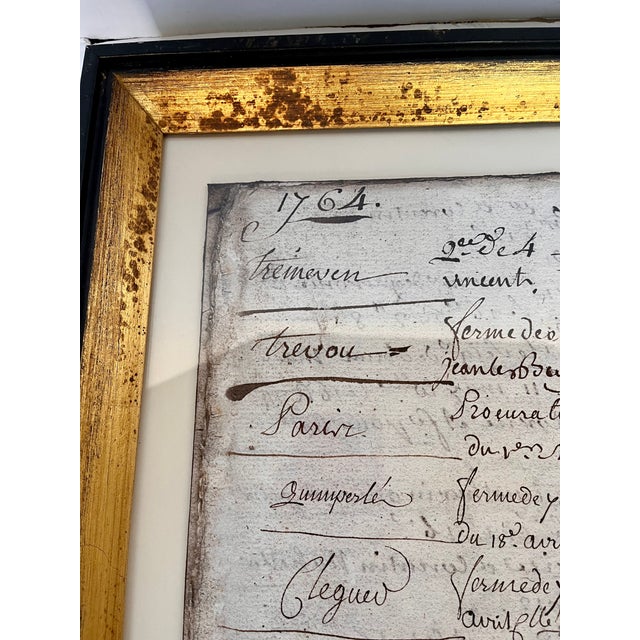 1764.
trémeven
qce de 4
vincent.
trevou =
ferme de
jean le
Procurat
du 1er
Quimperlé
ferme de
du 18e avri
Cleguer
ferme de
avril